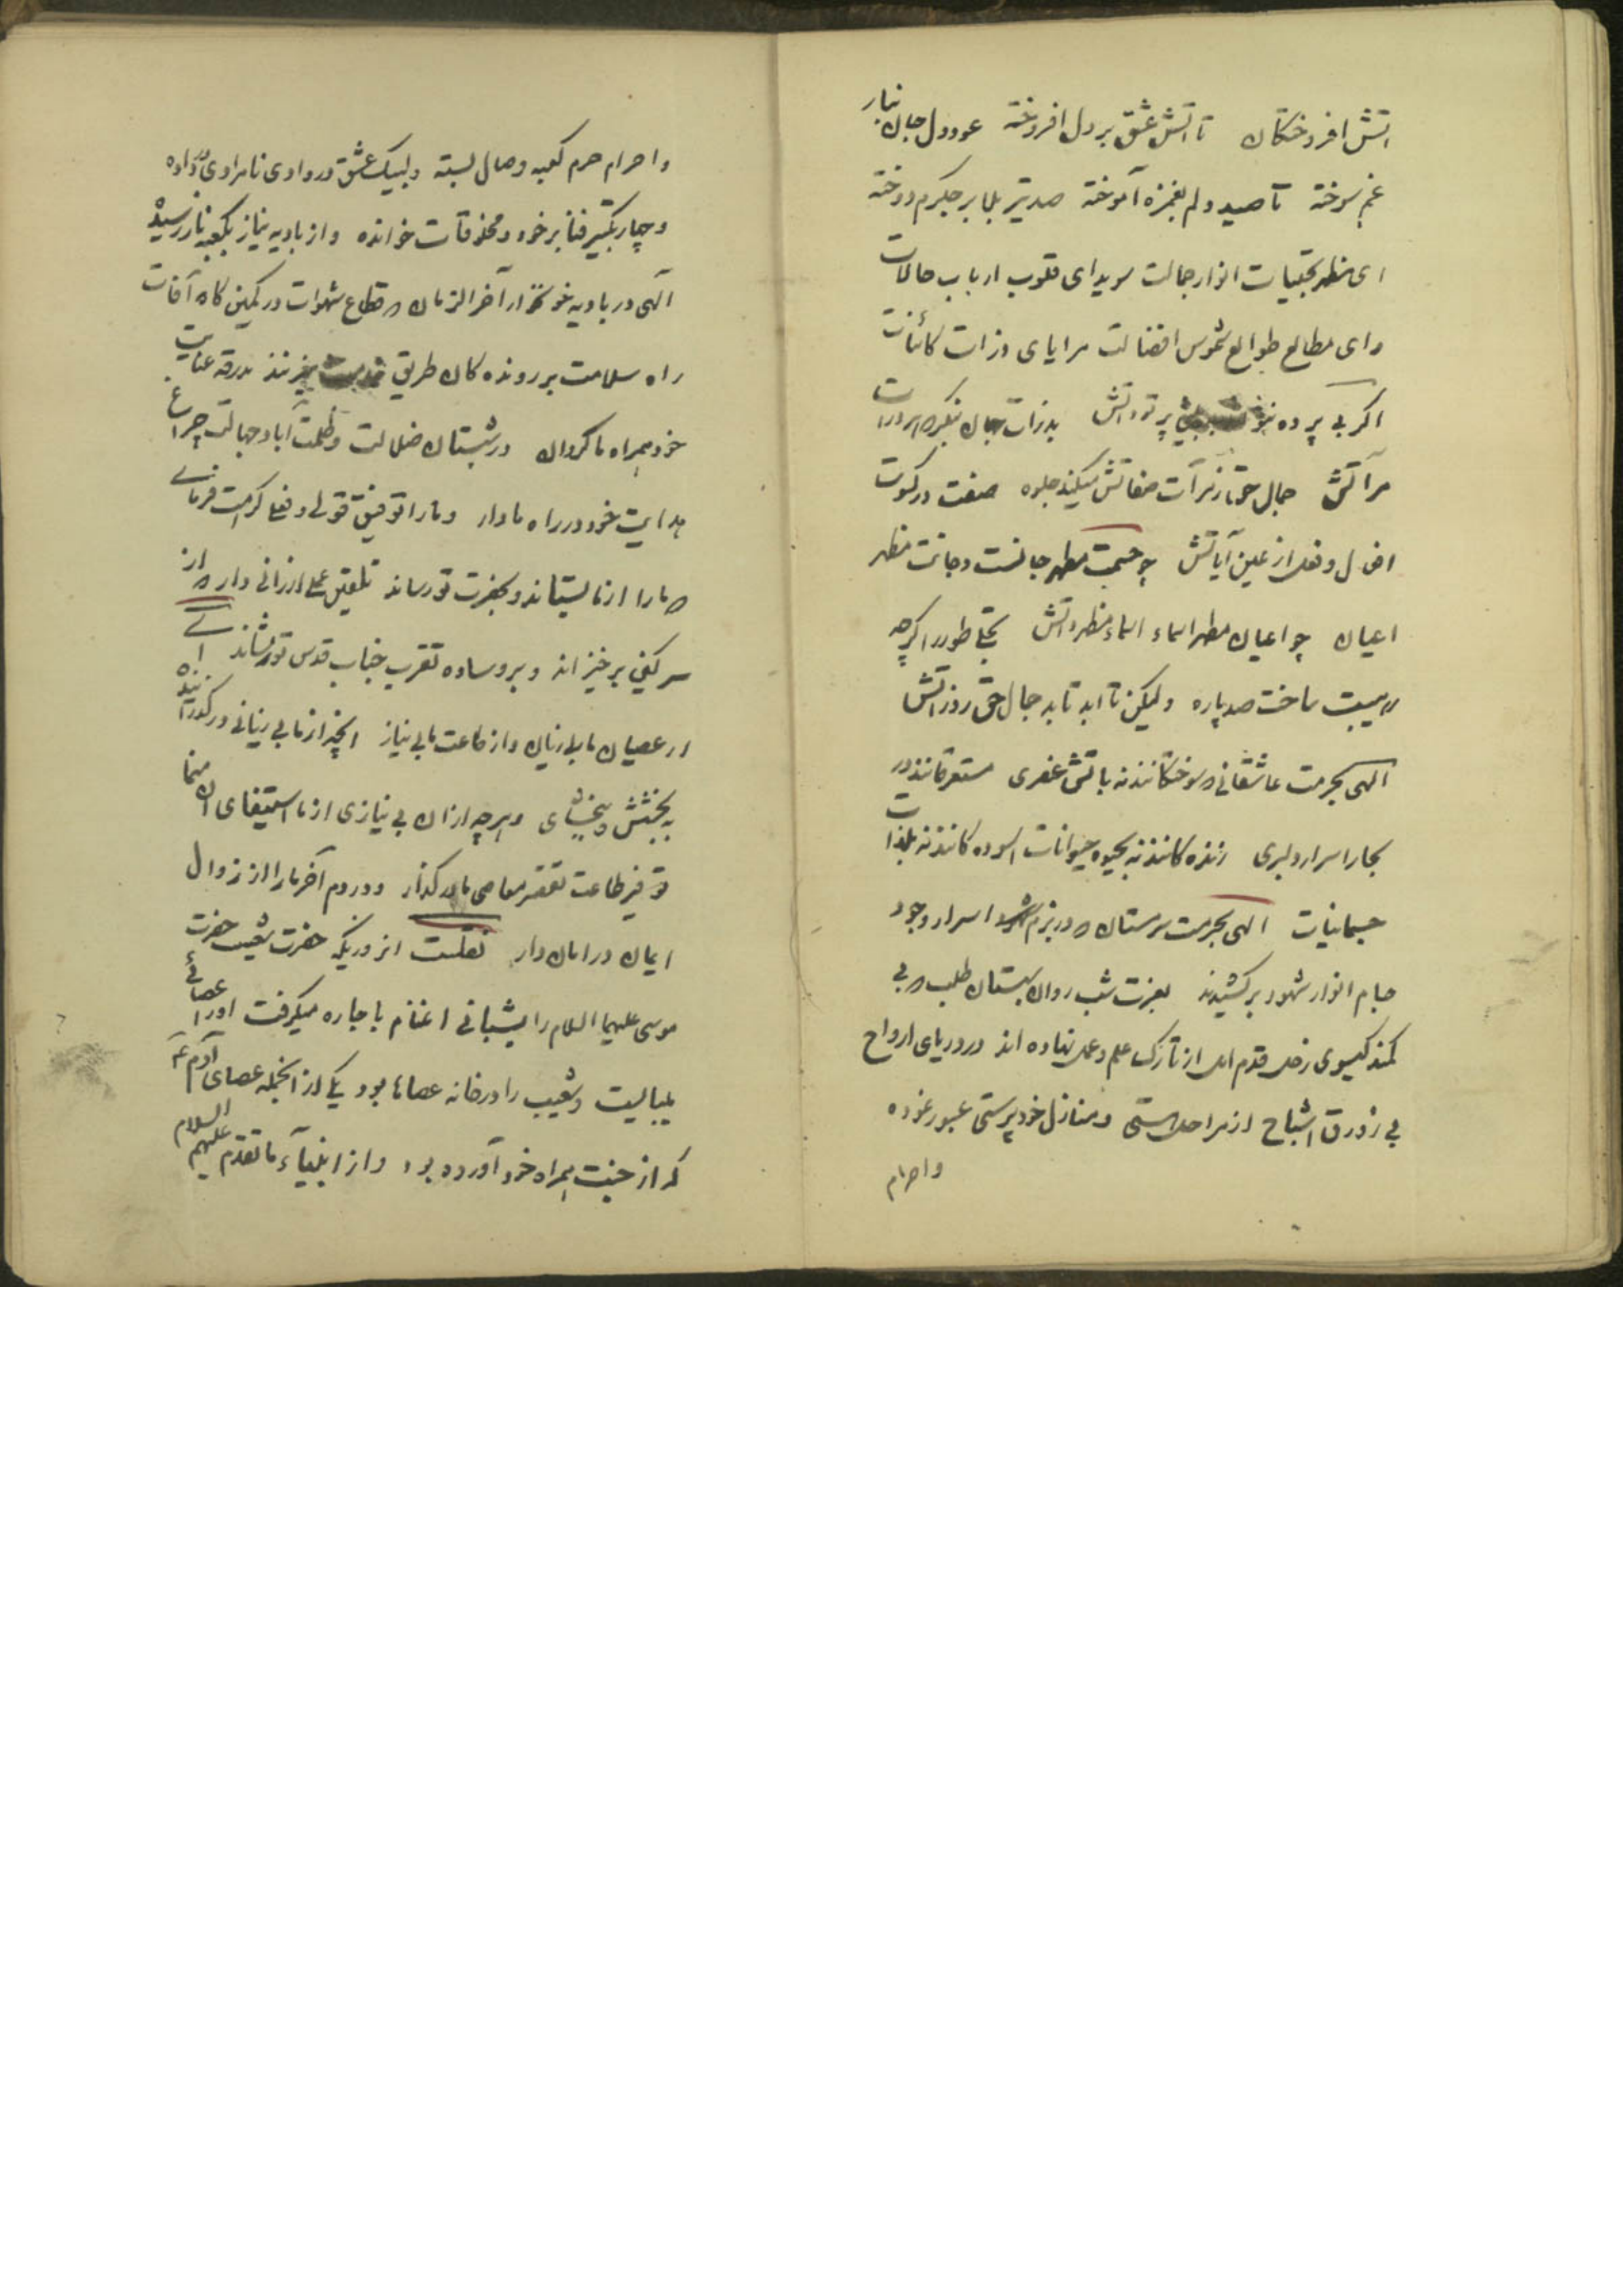 اتش افروختکان تا اتش عشق بر دل افروخته عود دل جان بنار
غم سوخته تا صید دلم بغمزه آموخته صد تیر بلا بر جکرم دوخته
ای مظهر تجلیات انوار جمالت سویدای قلوب ارباب حالات
وای مطالع طوالع شموس افضالت مرایای ذرات کائنات
اکر بی پرده پرتو ذاتش بذرات جهان بنکر
مرآتش جمال حق ز مرآت صفاتش میکند جلوه صفت در کسوت
افعال و فعل از عین آیاتش چو جسمت مظهر جانست و جانت مظهر
اعیان چو اعیان مظهر اسماء اسماء مظهر ذاتش تجلی طور را کرچه
ز هیبت ساخت صد پاره ولیکن تا ابد تابد جمال حق ز ذراتش
الهی بحرمت عاشقانی که سوختکانند نه باتش عنصری مستغرقانند در
بحار اسرار دلبری زنده کانند نه بحیوه حیوانات اسوده کانند نه بلذات
جسمانیات الهی بحرمت سرمستان که در بزم اسرار وجود
جام انوار شهود برکشیدند بعزت شب روان شبستان طلب که بی
کمند کیسوی زحل قدم امل از تارک علم و عمل نهاده اند در دریای ارواح
بی زورق اشباح از مراحل هستی و منازل خودپرستی عبور نموده
واحرام
واحرام حرم کعبه وصال بسته و لبیک عشق در وادی نامرادی در داده
و چهار تکبیر فنا بر خود و مخلوقات خوانده و از بادیه نیاز بکعبه ناز رسیده
آلهی در بادیه آخر الزمان که قطاع شهوات در کمین کاه آفات
راه سلامت بر رونده کان طریق میزنند بدرقه عنایت
خود همراه ما کردان در شبستان ضلالت و ظلمت آباد جهالت چراغ
هدایت خود در راه ما دار و ما را توفیق قولی و فعلی کرامت فرمای
که ما را از ما بستاند و بحضرت تو رساند تلقین عملی ارزانی دار که از
سر برخیزاند و بر وساده تقرب جناب قدس تو بنشاند ای
از عصیان ما بی زیان و از طاعت ما بی نیاز انچه از ما بی زیانی درکذران
به بخشش و ببخشای و هرچه از ان بی نیازی از ما استیفای ان منما
توفیر طاعت تقصر معاصی ما درکذار و در دم آخر ما را از زوال
ایمان در امان دار نقلست از وزیکه حضرت شعیب حضرت
موسی علیهما السلام را بشبانی اغنام باجاره میکرفت اورا عصائی
میبایست و شعیب را در خانه عصاها بود یکی از انجمله عصای آدم
که از جنت همراه خود آورده بود و از انبیآء ما تقدم علیهم السلام